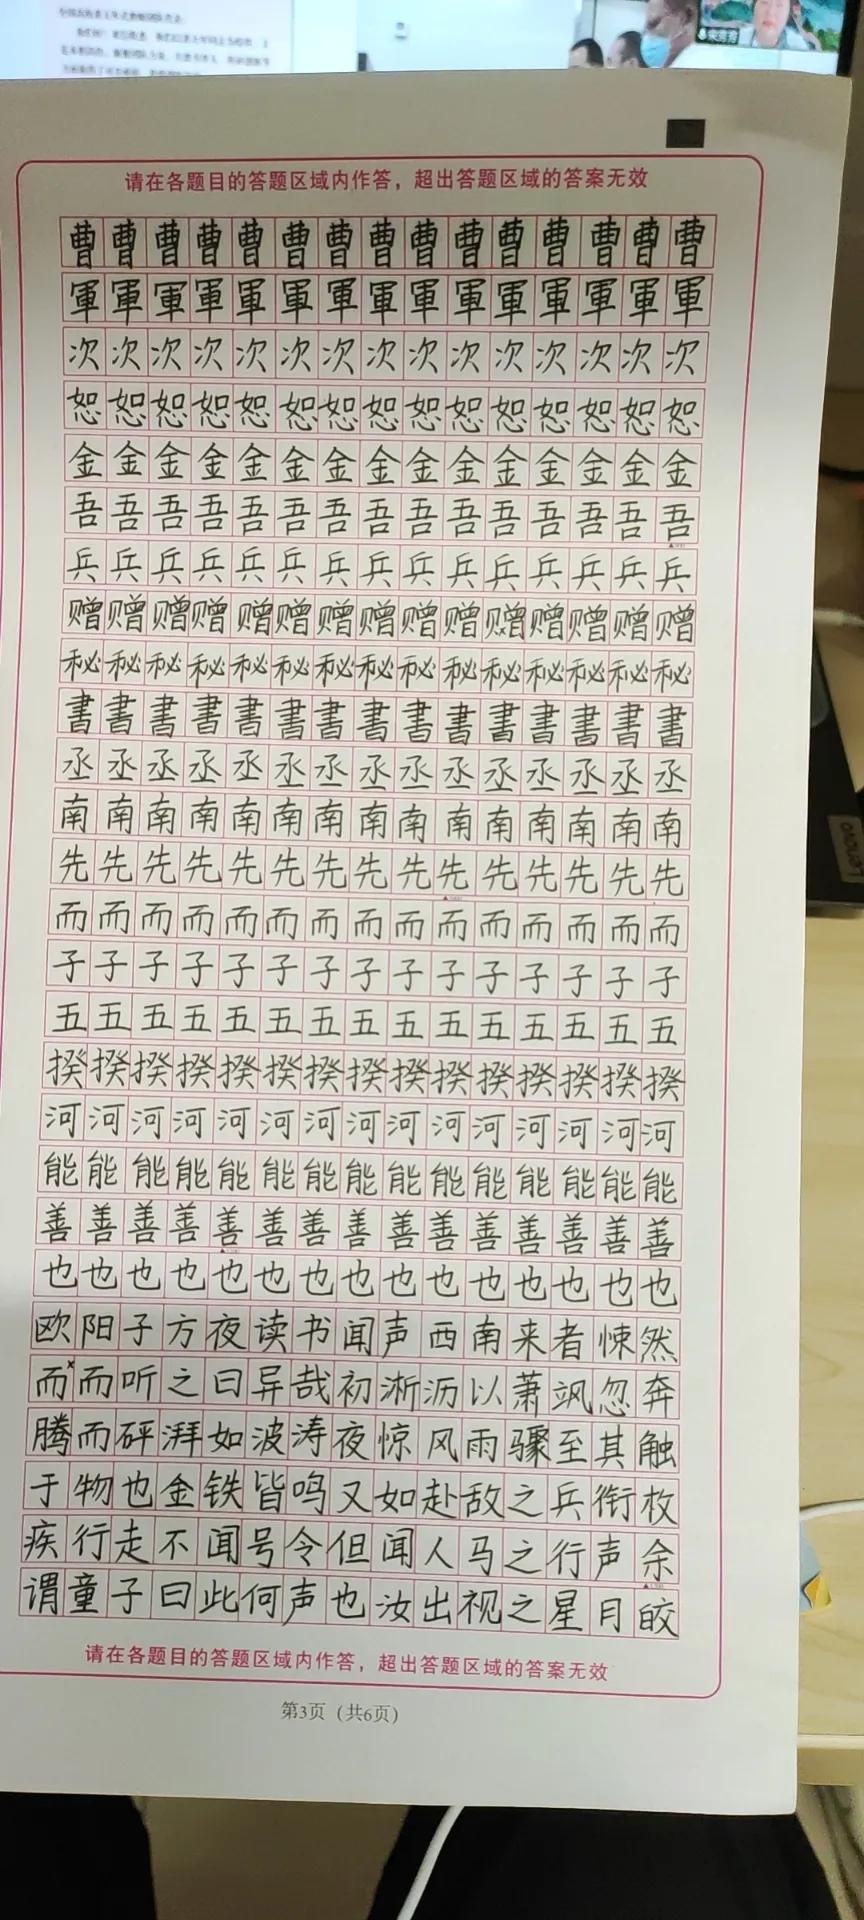 请在各题目的答题区域内作答，超出答题区域的答案无效
曹曹曹曹曹曹曹曹曹曹曹曹曹曹曹
軍軍軍軍軍軍軍軍軍軍軍軍軍軍軍
次次次次次次次次次次次次次次次
恕恕恕恕恕恕恕恕恕恕恕恕恕恕恕
金金金金金金金金金金金金金金金
吾吾吾吾吾吾吾吾吾吾吾吾吾吾吾
兵兵兵兵兵兵兵兵兵兵兵兵兵兵兵
赠赠赠赠赠赠赠赠赠赠赠赠赠赠赠
秘秘秘秘秘秘秘秘秘秘秘秘秘秘秘
書書書書書書書書書書書書書書書
丞丞丞丞丞丞丞丞丞丞丞丞丞丞丞
南南南南南南南南南南南南南南南
先先先先先先先先先先先先先先先
而而而而而而而而而而而而而而而
子子子子子子子子子子子子子子子
五五五五五五五五五五五五五五五
揆揆揆揆揆揆揆揆揆揆揆揆揆揆揆
河河河河河河河河河河河河河河河
能能能能能能能能能能能能能能能
善善善善善善善善善善善善善善善
也也也也也也也也也也也也也也也
欧阳子方夜读书闻声西南来者悚然
而而听之曰异哉初淅沥以萧飒忽奔
腾而砰湃如波涛夜惊风雨骤至其触
于物也金铁皆鸣又如赴敌之兵衔枚
疾行走不闻号令但闻人马之行声余
谓童子曰此何声也汝出视之星月皎
请在各题目的答题区域内作答，超出答题区域的答案无效
第3页（共6页）
lenovo